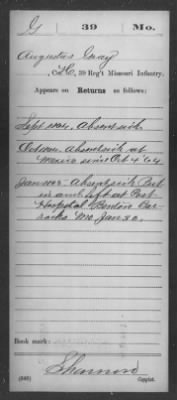 G 39 Mo.
Augustus Gray
, Co. H, 39 Reg't Missouri Infantry.
Appears on Returns as follows:
Sept 1864, Absent sick
Oct 1864. Absent sick at
since Oct 4 '64
Jan 1865 - Absent sick Post
in and left at Post
Hospital Benton Bar-
racks Mo Jan 30.
Book mark:
Shannon
(546) Copyist.